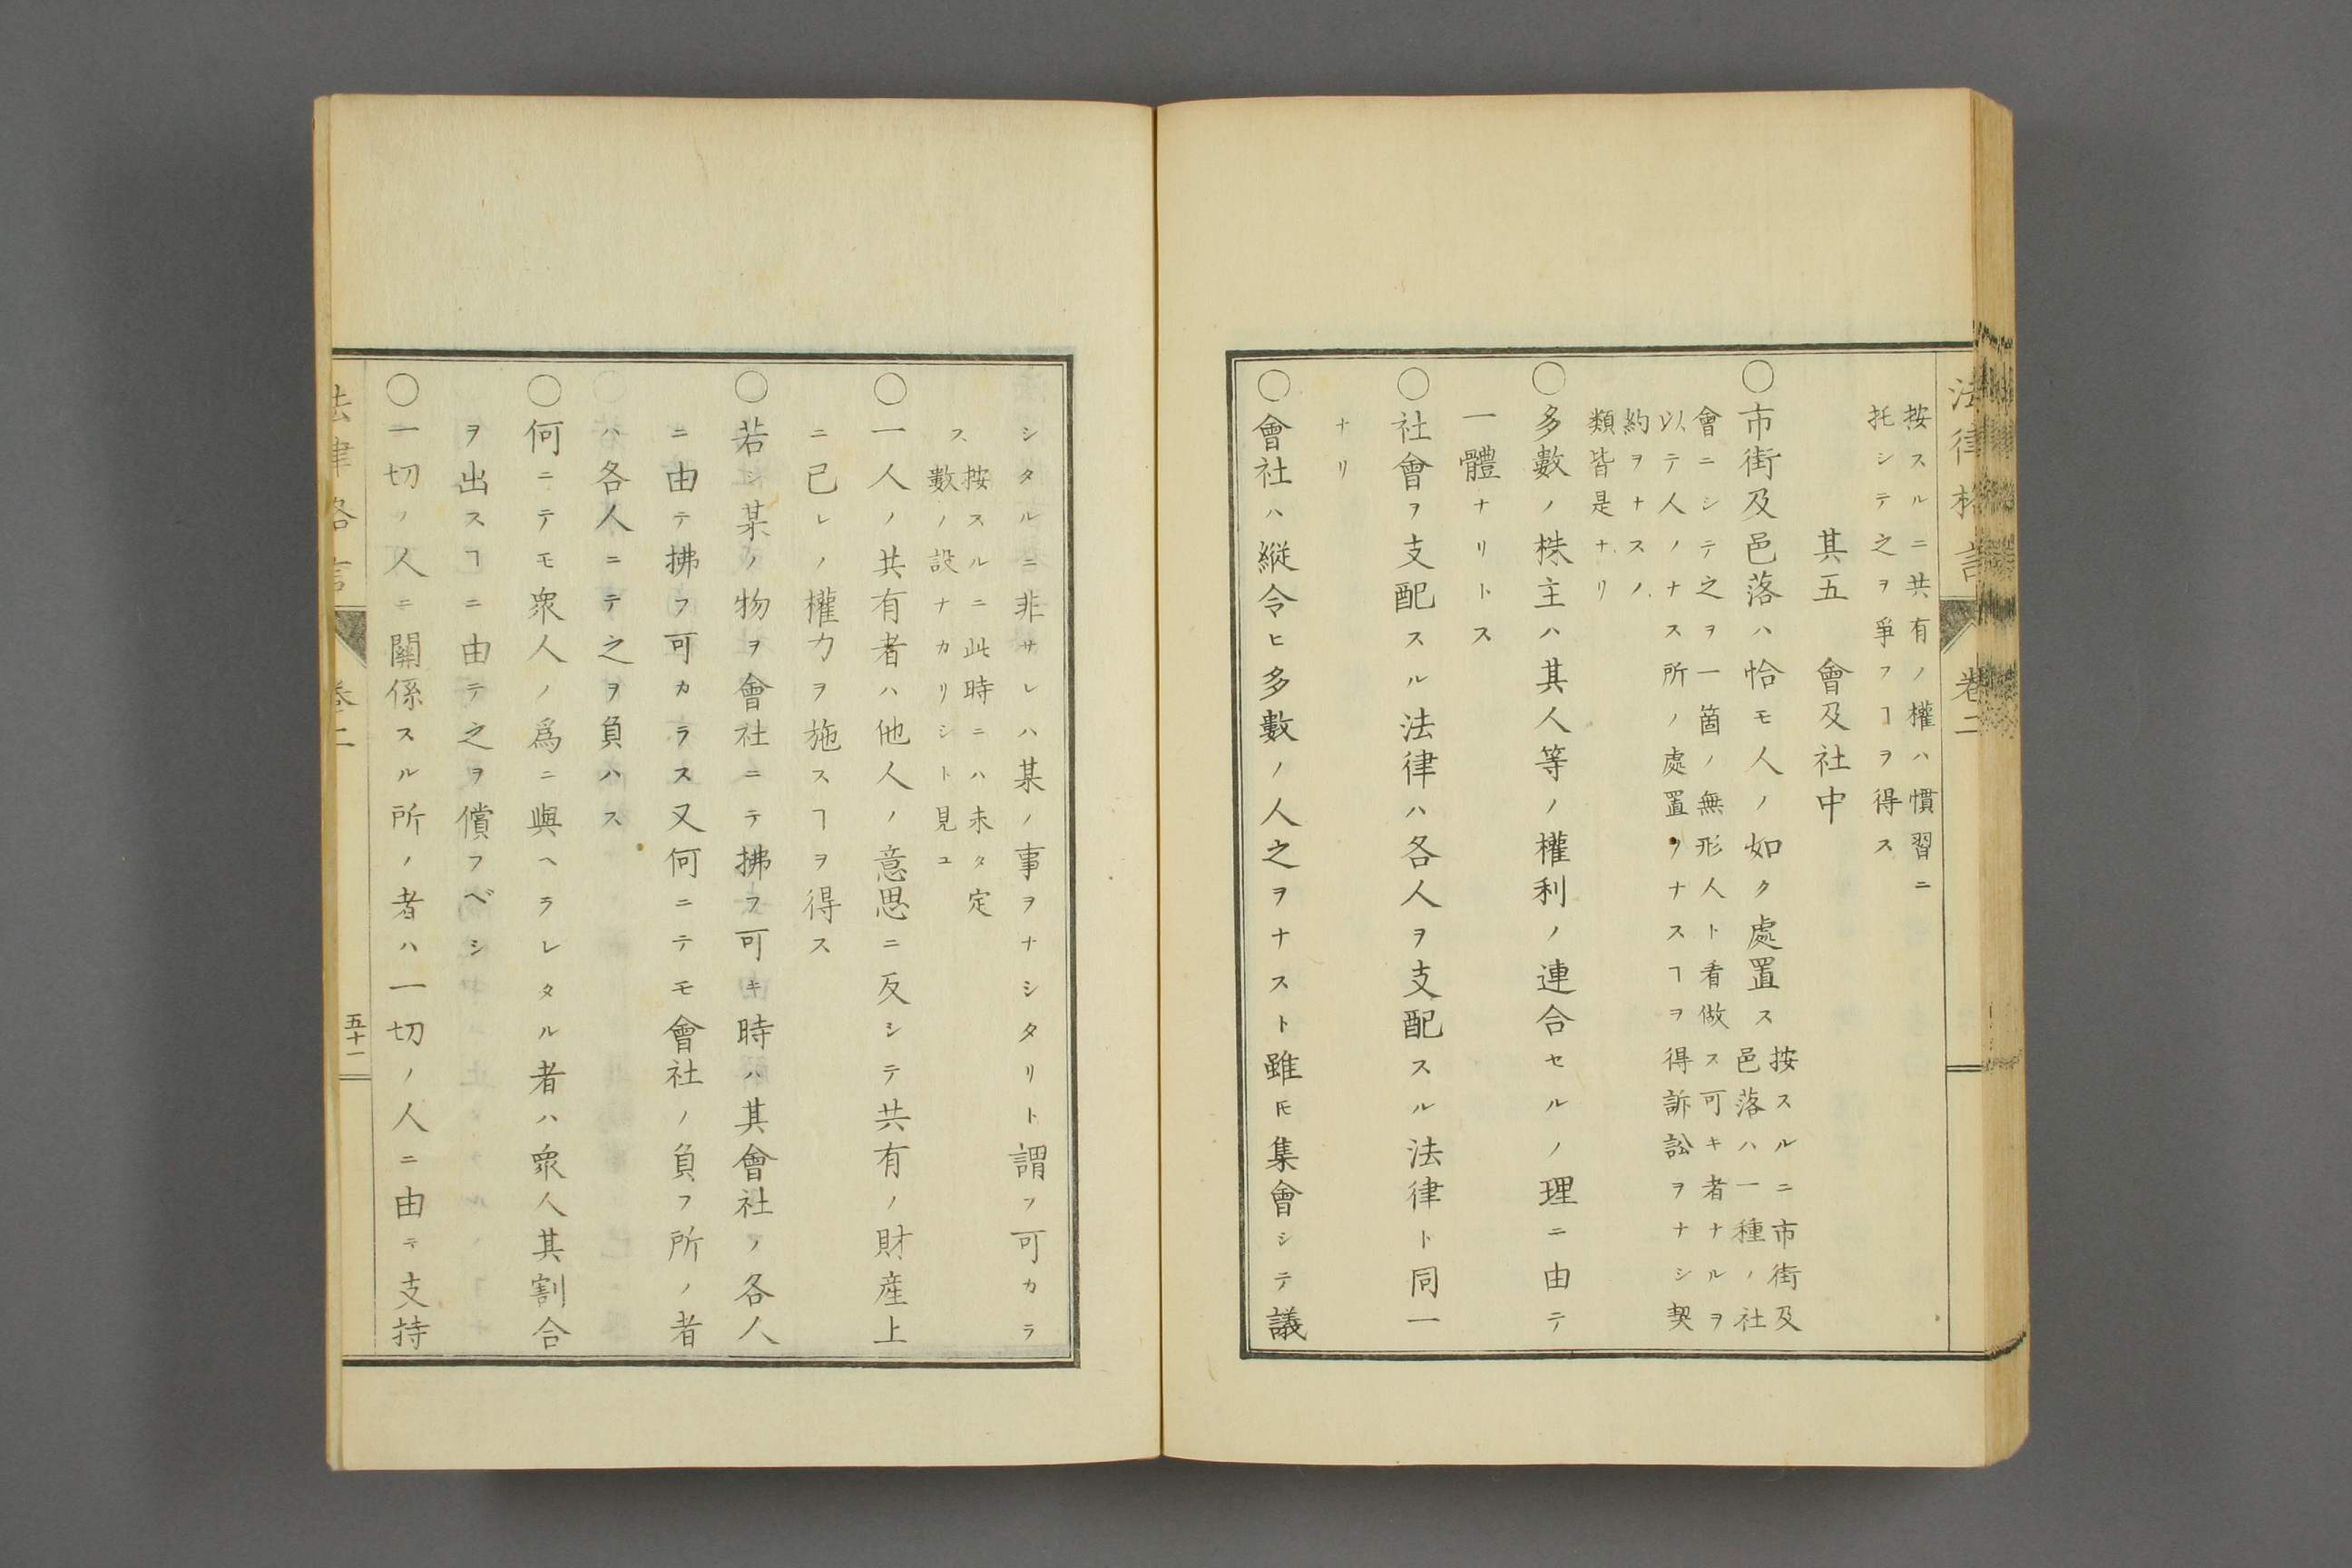 法律格言
卷二
按スルニ共有ノ權ハ慣習ニ
托シテ之ヲ爭フヿヲ得ス
其五　會及社中
○市街及邑落ハ恰モ人ノ如ク處置ス
按スルニ市街及
邑落ハ一種ノ社
會ニシテ之ヲ一箇ノ無形人ト看做ス可キ者ナルヲ
以テ人ノナス所ノ處置ヲナスヿヲ得訴訟ヲナシ契
約ヲナスノ
類皆是ナリ
○多數ノ株主ハ其人等ノ權利ノ連合セルノ理ニ由テ
一體ナリトス
○社會ヲ支配スル法律ハ各人ヲ支配スル法律ト同一
ナリ
○會社ハ縱令ヒ多數ノ人之ヲナスト雖𪜈集會シテ議
シタルニ非サレハ某ノ事ヲナシタリト謂フ可カラ
ス
按スルニ此時ニハ未タ定
數ノ設ナカリシト見ユ
○一人ノ共有者ハ他人ノ意思ニ反シテ共有ノ財産上
ニ己レノ權力ヲ施スヿヲ得ス
○若シ某ノ物ヲ會社ニテ拂フ可キ時ハ其會社ノ各人
ニ由テ拂フ可カラス又何ニテモ會社ノ負フ所ノ者
ハ各人ニテ之ヲ負ハス
○何ニテモ衆人ノ爲ニ與ヘラレタル者ハ衆人其割合
ヲ出スヿニ由テ之ヲ償フベシ
○一切ノ人ニ關係スル所ノ者ハ一切ノ人ニ由テ支持
法律格言
卷二
五十一